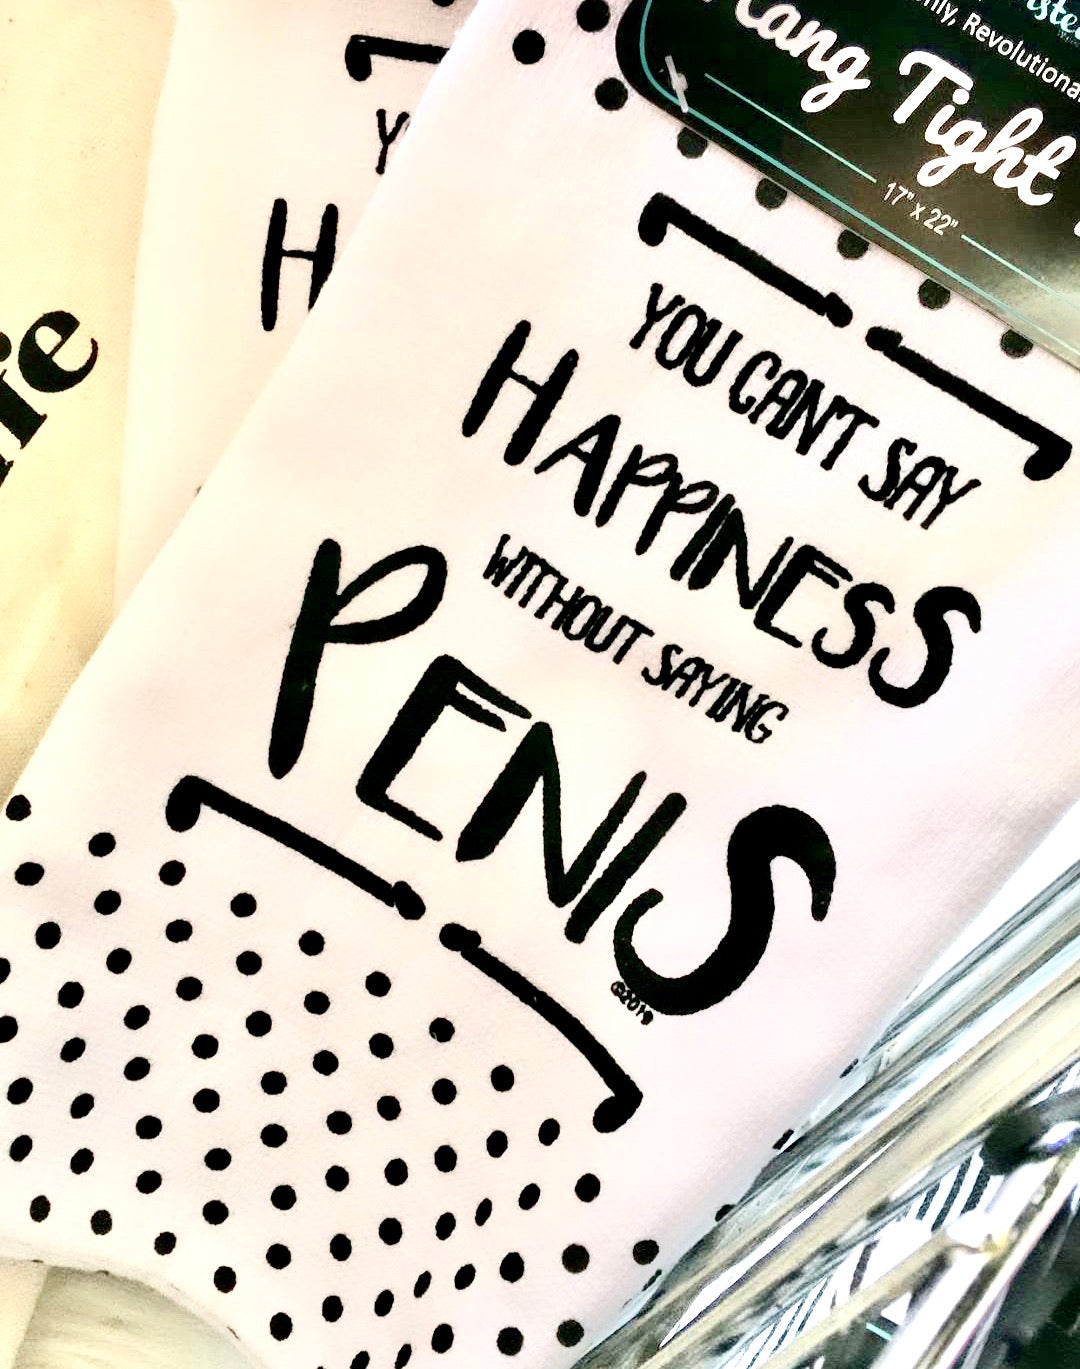 Revolutiona
Hang Tight
17" x 22"
YOU CAN'T SAY
HAPPINESS
WITHOUT SAYING
PENIS
©2019
Y
H